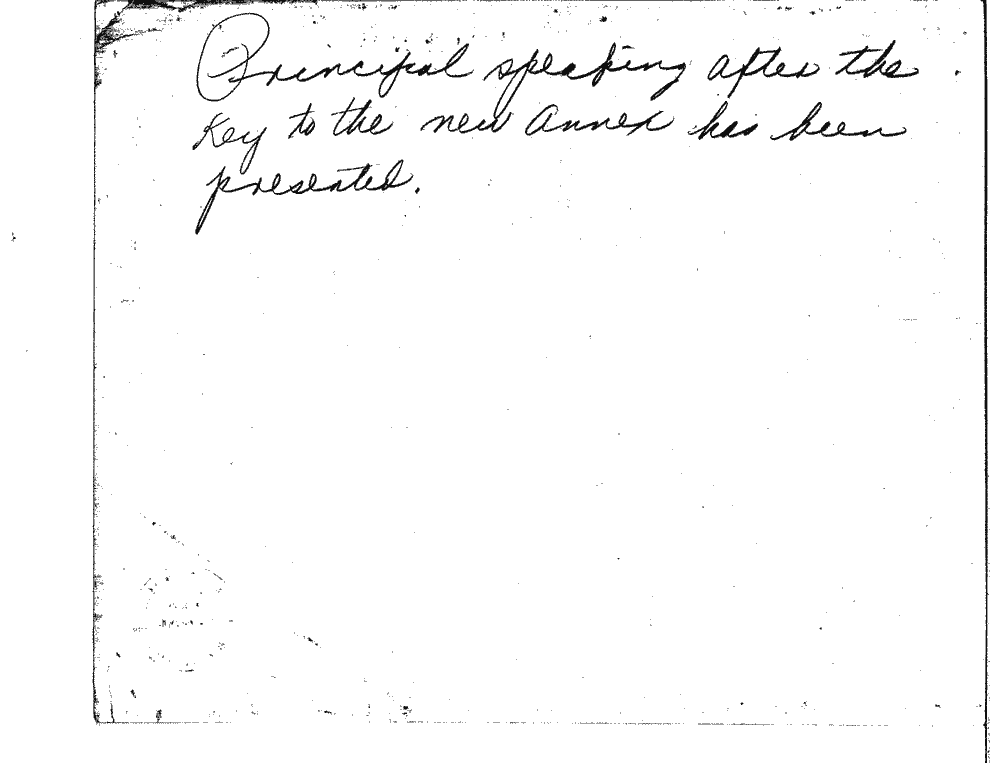 Principal speaking after the
Key to the new Annex has been
presented.